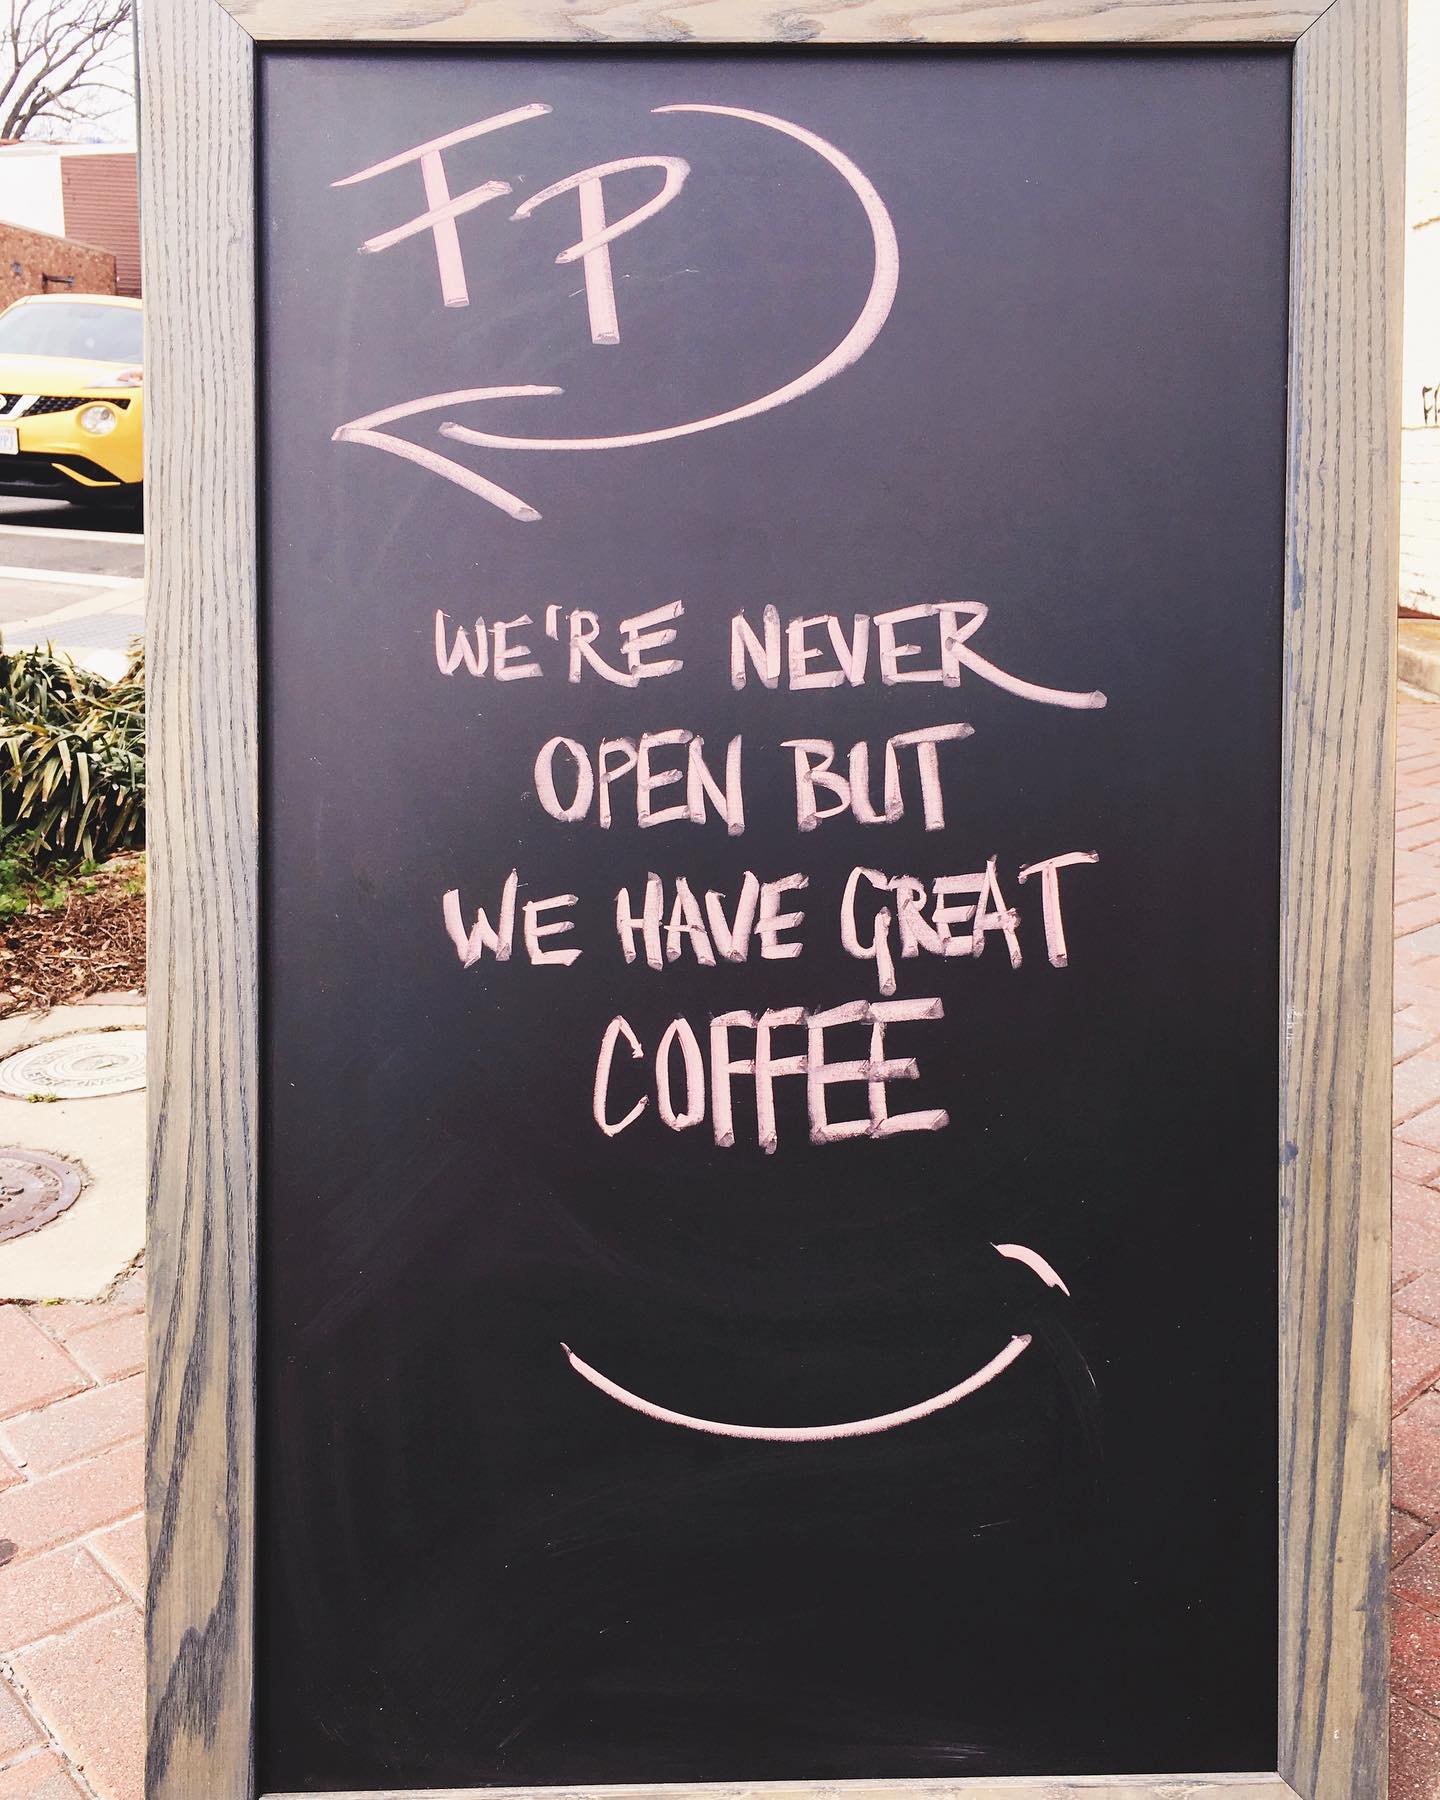 FP
WE'RE NEVER
OPEN BUT
WE HAVE GREAT
COFFEE